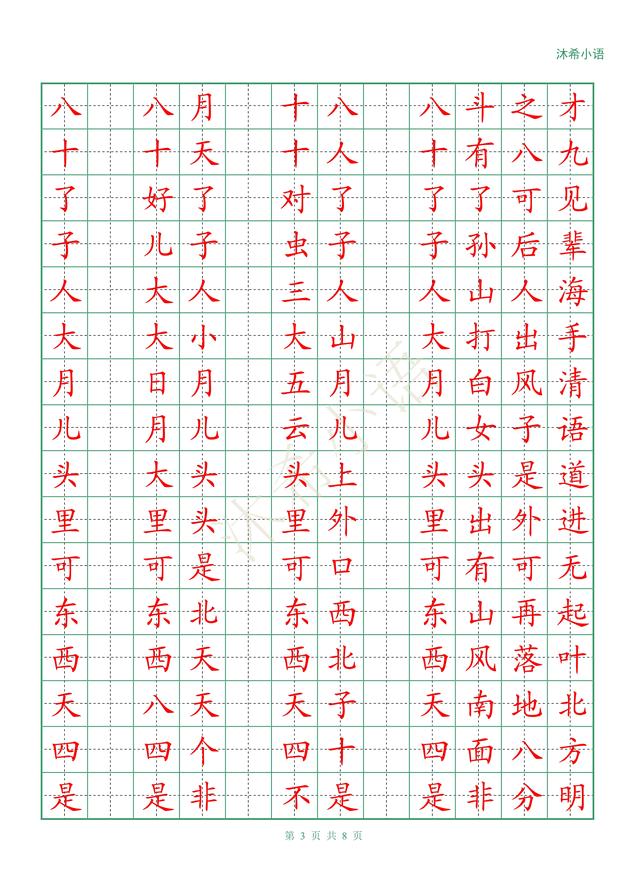 沐希小语
八 八月 十八 八斗之才
十 十天 十人 十有八九
了 好了 对了 了了可见
子 儿子 虫子 子孙后辈
人 大人 三人 人山人海
大 大小 大山 大打出手
月 日月 五月 月白风清
儿 月儿 云儿 儿女子语
头 大头 头上 头头是道
里 里头 里外 里出外进
可 可是 可口 可有可无
东 东北 东西 东山再起
西 西天 西北 西风落叶
天 八天 天子 天南地北
四 四个 四十 四面八方
是 是非 不是 是非分明
沐希小语
第 3 页 共 8 页